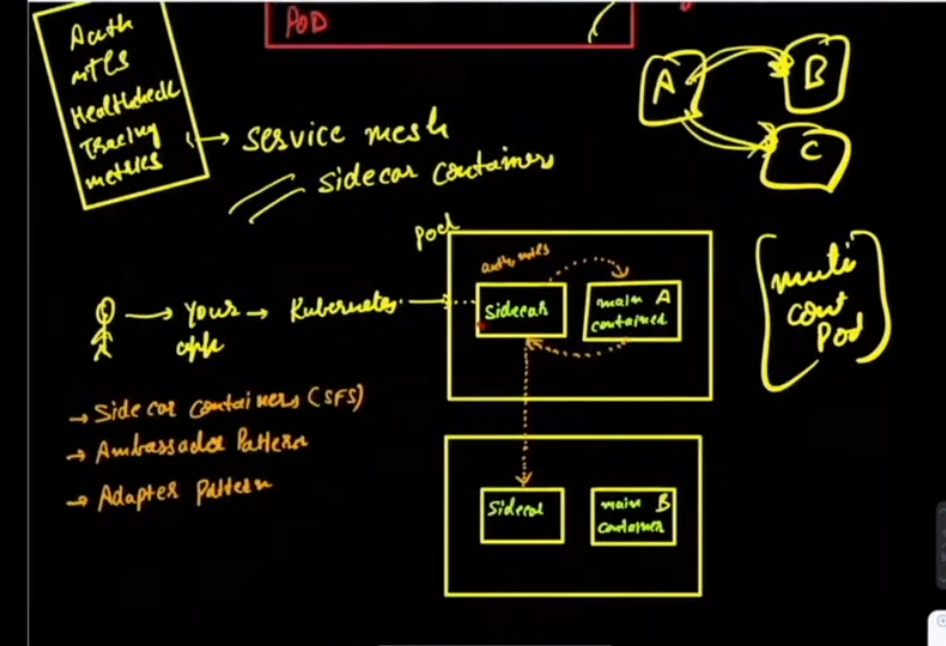 POD
Auth
mTLS
Healthcheck
Tracing
metrics
→ service mesh
sidecar containers
A
B
C
Pod
auth, mTLS
→ your → Kubernetes →
app
Sidecar
main A
container
multi
cont
Pod
→ Sidecar Containers (SFS)
→ Ambassador Pattern
→ Adapter Pattern
Sidecar
main B
container